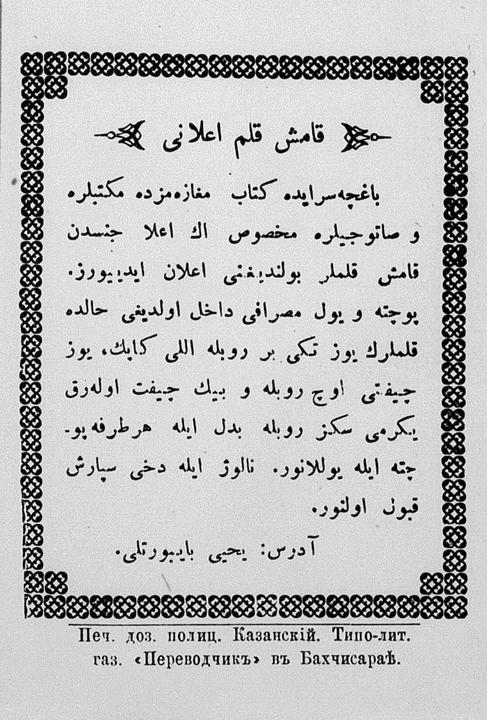 قامش قلم اعلانی
باغچه‌سرايده كتاب مغازه‌مزده مكتبلره
و صاتوجيلره مخصوص اك اعلا جنسدن
قامش قلملر بولنديغنی اعلان ايدييورز.
پوچته و يول مصرافی داخل اولديغی حالده
قلملرك يوز تكی بر روبله اللی كاپك، يوز
چيفتی اوچ روبله و بيك چيفت اوله‌رق
يكرمی سكز روبله بدل ايله هرطرفه پو-
چته ايله يوللانور. نالوژ ايله دخی سپارش
قبول اولنور.
آدرس: يحيی بايبورتلی.
Печ. доз. полиц. Казанскій. Типо-лит.
газ. «Переводчикъ» въ Бахчисараѣ.